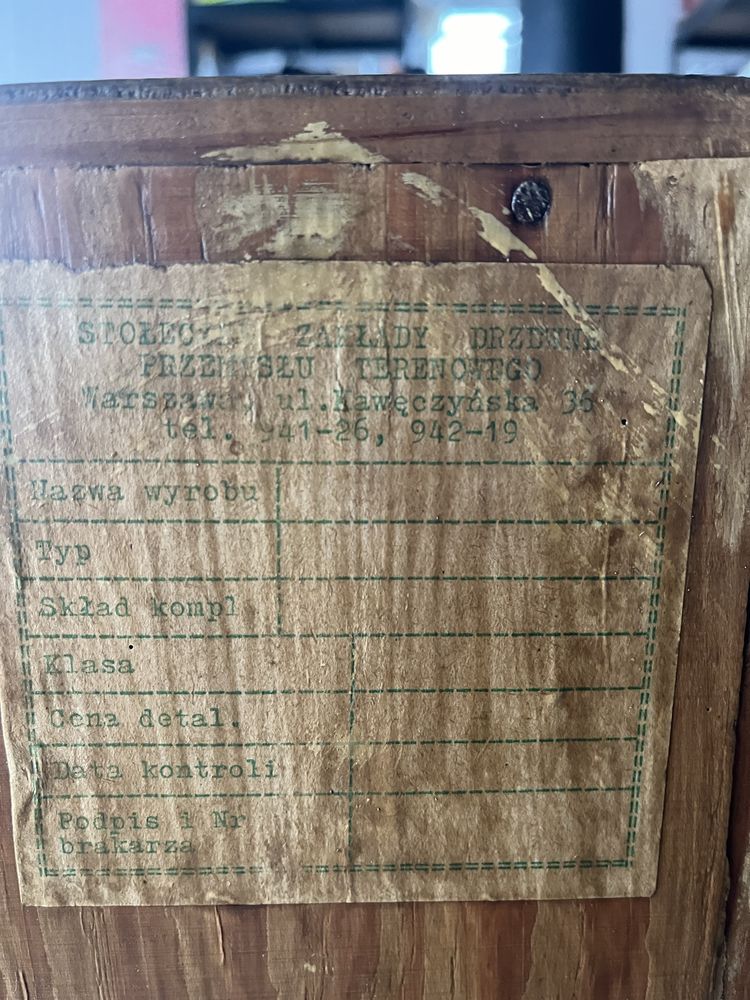 STOŁECZNE ZAKŁADY DRZEWNE
PRZEMYSŁU TERENOWEGO
Warszawa, ul.Kawęczyńska 36
tel. 941-26, 942-19
Nazwa wyrobu
Typ
Skład kompl
Klasa
Cena detal.
Data kontroli
Podpis i Nr
brakarza